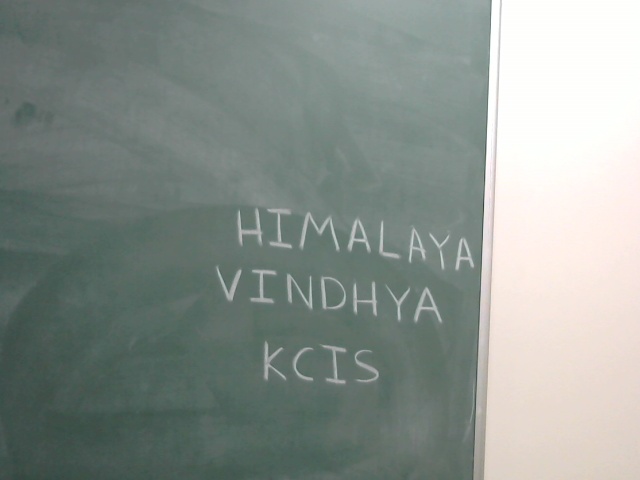 HIMALAYA
VINDHYA
KCIS